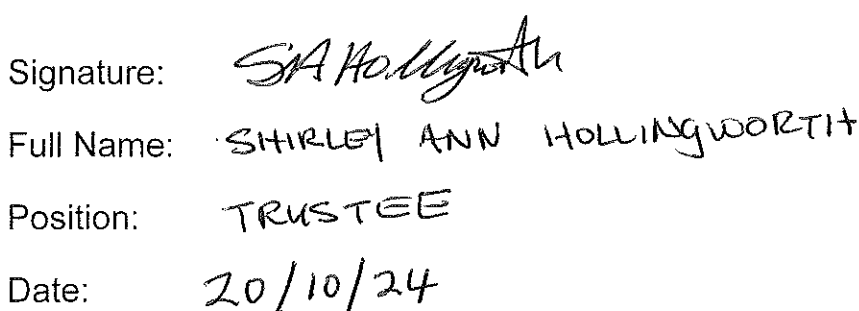 Signature: SA Hollingworth
Full Name: SHIRLEY ANN HOLLINGWORTH
Position: TRUSTEE
Date: 20/10/24